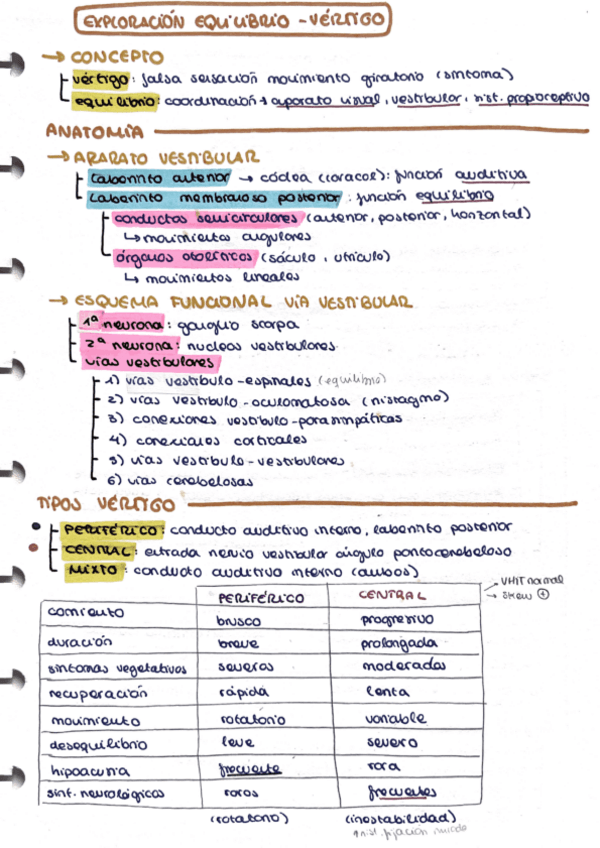 EXPLORACIÓN EQUILIBRIO - VÉRTIGO
→ CONCEPTO
vértigo: falsa sensación movimiento giratorio (síntoma)
equilibrio: coordinación → aparato visual, vestibular, sist. propioceptivo
ANATOMÍA
→ APARATO VESTIBULAR
Laberinto anterior → cóclea (caracol): función auditiva
Laberinto membranoso posterior: función equilibrio
conductos semicirculares (anterior, posterior, horizontal)
↳ movimientos angulares
órganos otolíticos (sáculo, utrículo)
↳ movimientos lineales
→ ESQUEMA FUNCIONAL VÍA VESTIBULAR
1ª neurona: ganglio scarpa
2ª neurona: nucleos vestibulares
vías vestibulares
1) vías vestíbulo-espinales (equilibrio)
2) vías vestíbulo-oculomotosa (nistagmo)
3) conexiones vestíbulo-parasimpáticas
4) conexiones corticales
5) vías vestíbulo-vestibulares
6) vías cerebelosas
TIPOS VÉRTIGO
PERIFÉRICO: conducto auditivo interno, laberinto posterior
CENTRAL: entrada nervio vestibular ángulo pontocerebeloso
MIXTO: conducto auditivo interno (ambos)
→ VHIT normal
PERIFÉRICO CENTRAL → skew ⊕
comienzo brusco progresivo
duración breve prolongada
síntomas vegetativos severos moderados
recuperación rápida lenta
movimiento rotatorio variable
desequilibrio leve severo
hipoacusia frecuente rara
sint. neurológicos raros frecuentes
(rotatorio) (inestabilidad)
nist. fijación mirada